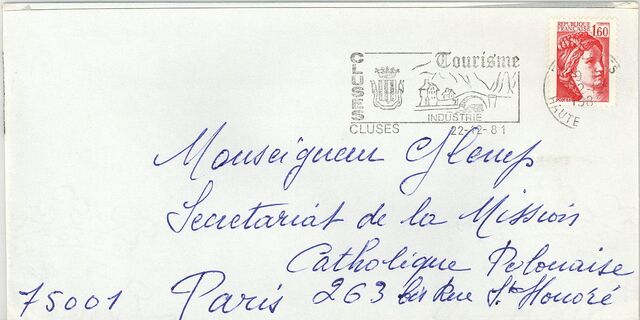 REPUBLIQUE
FRANÇAISE
1,60
CLUSES
Tourisme
INDUSTRIE
CLUSES
22-12-81
HAUTE
Monseigneur Glemp
Secretariat de la Mission
Catholique Polonaise
75001 Paris 263 bis Rue St Honoré